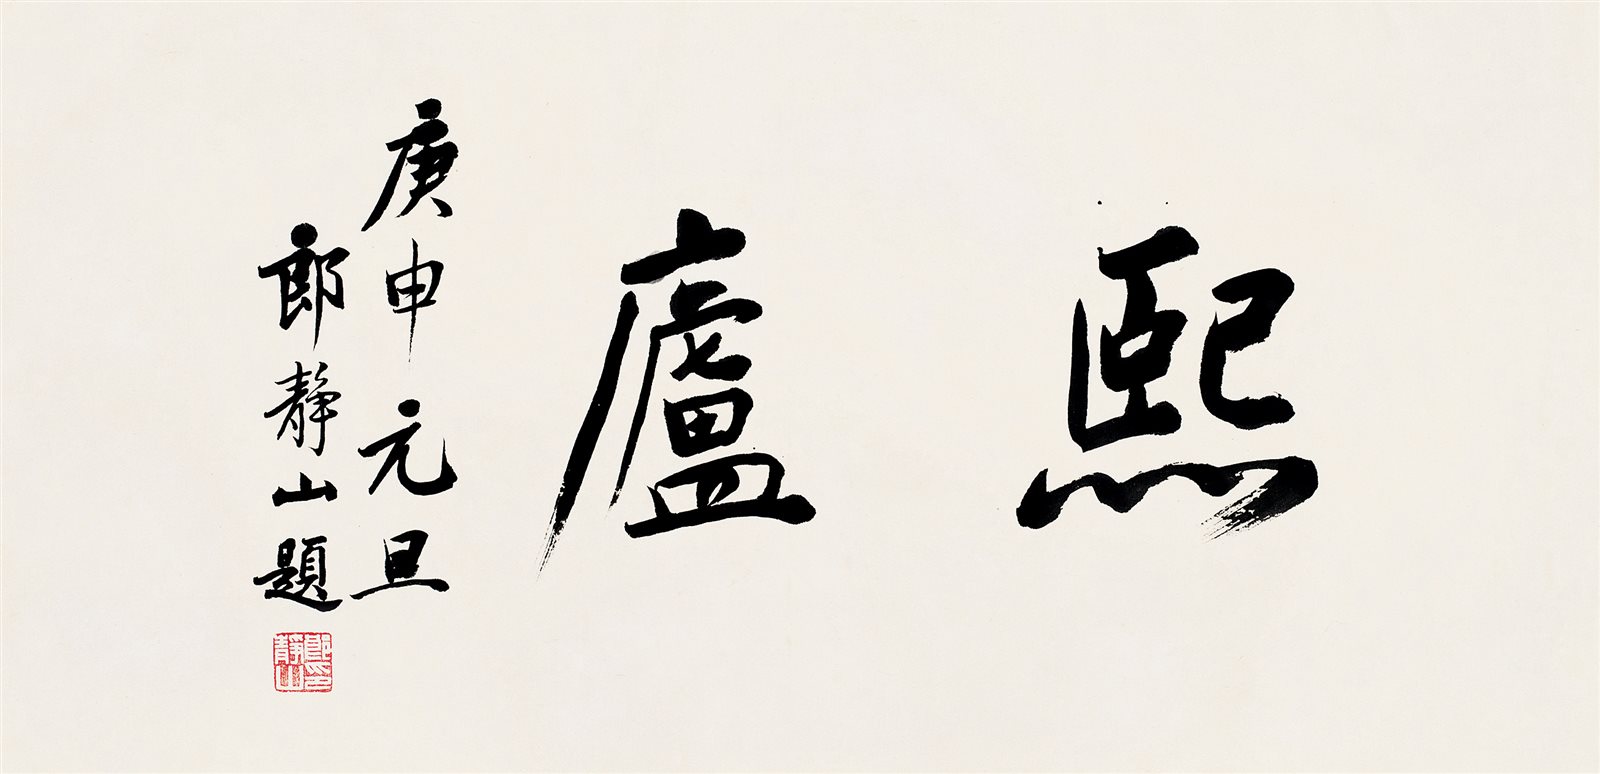 熙廬
庚申元旦
郎靜山題
郎靜山印